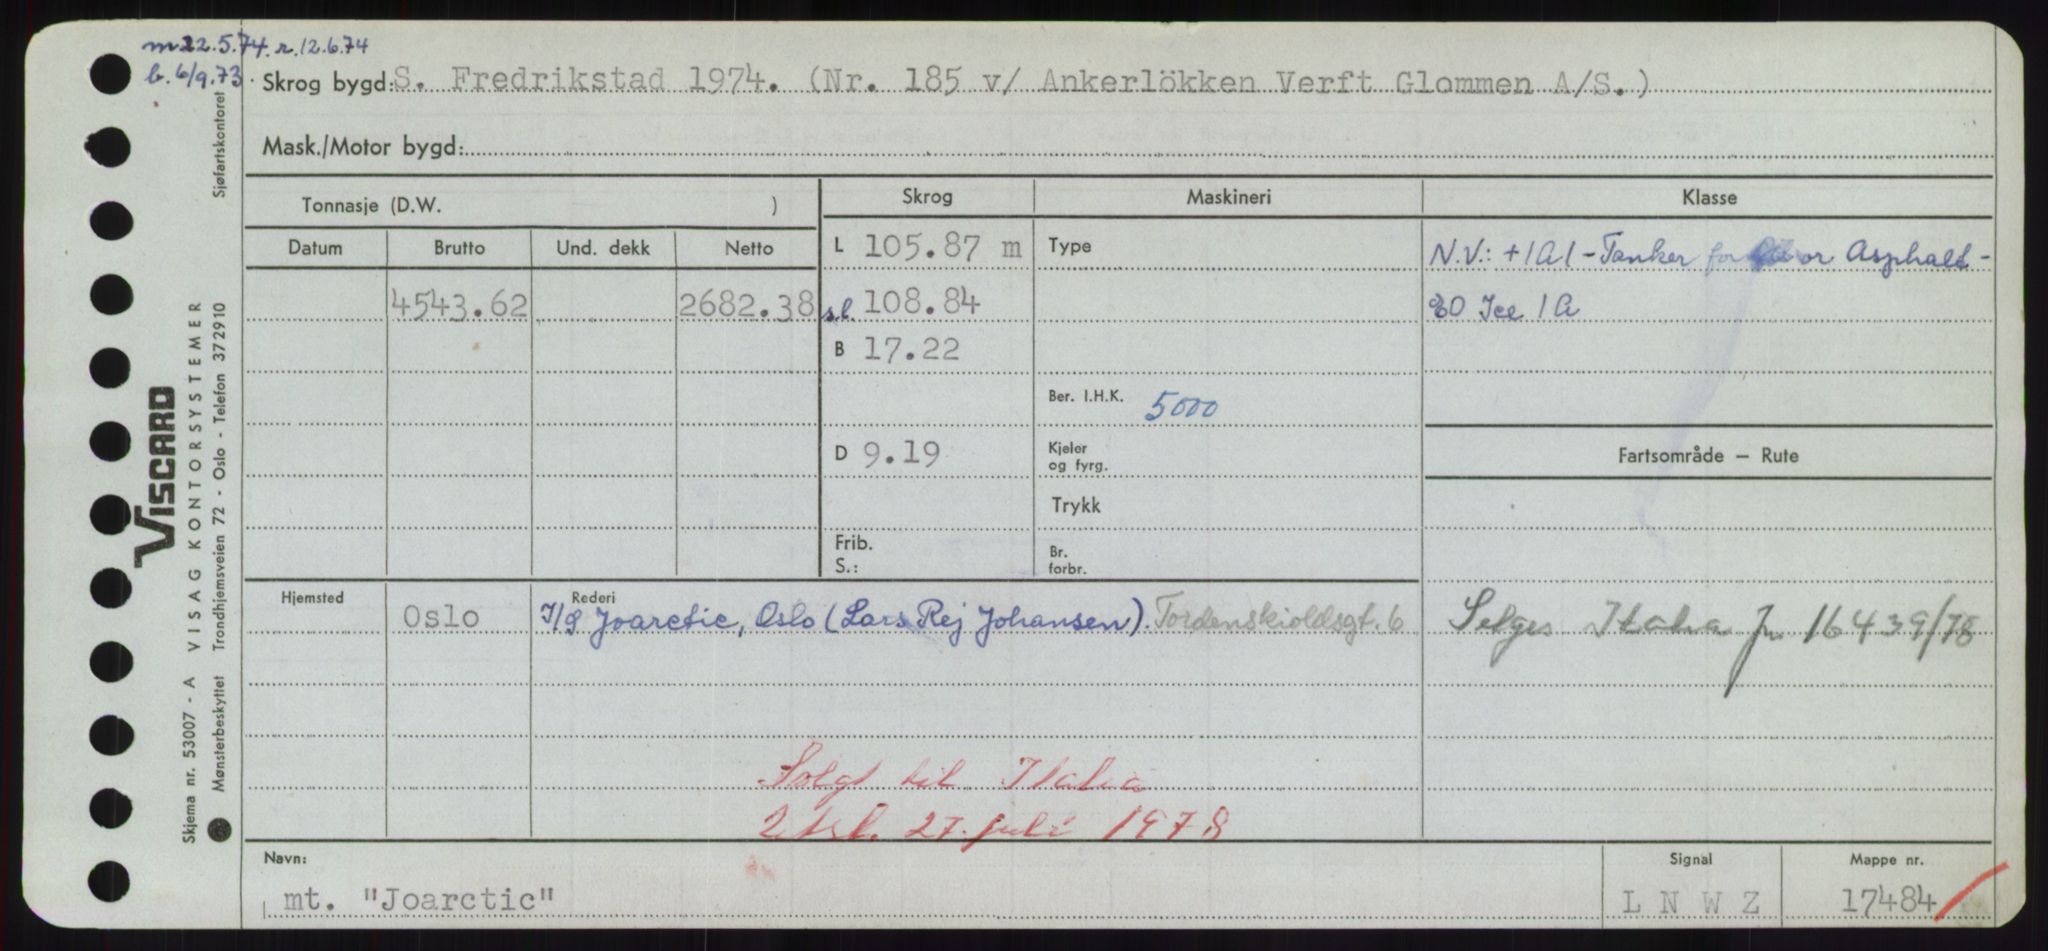 m22.5.74. r. 12.6.74
b. 6/9.73.
Skrog bygd: S. Fredrikstad 1974. (Nr. 185 v/ Ankerlökken Verft Glommen A/S.)
Mask./Motor bygd:
Tonnasje (D.W. )
Skrog Maskineri Klasse
Datum Brutto Und. dekk Netto
L 105.87 m Type N.V.: +1A1 - Tanker for or Asphalt -
4543.62 2682.38 s.l. 108.84 EO Ice 1A
B 17.22
Ber. I.H.K. 5000
D 9.19 Kjeler og fyrg. Fartsområde — Rute
Trykk
Frib. S.: Br. forbr.
Hjemsted Oslo Rederi I/S Joarctic, Oslo (Lars Rej Johansen). Tordenskioldsgt. 6 Selges Italia Jr 16439/78
Solgt til Italia
Utsl. 27. juli 1978
Navn: Signal Mappe nr.
mt. "Joarctic" L N W Z 17484
VISCARD
Skjema nr. 53007 - A VISAG KONTORSYSTEMER
Mønsterbeskyttet Trondhjemsveien 72 - Oslo - Telefon 372910 Sjøfartskontoret